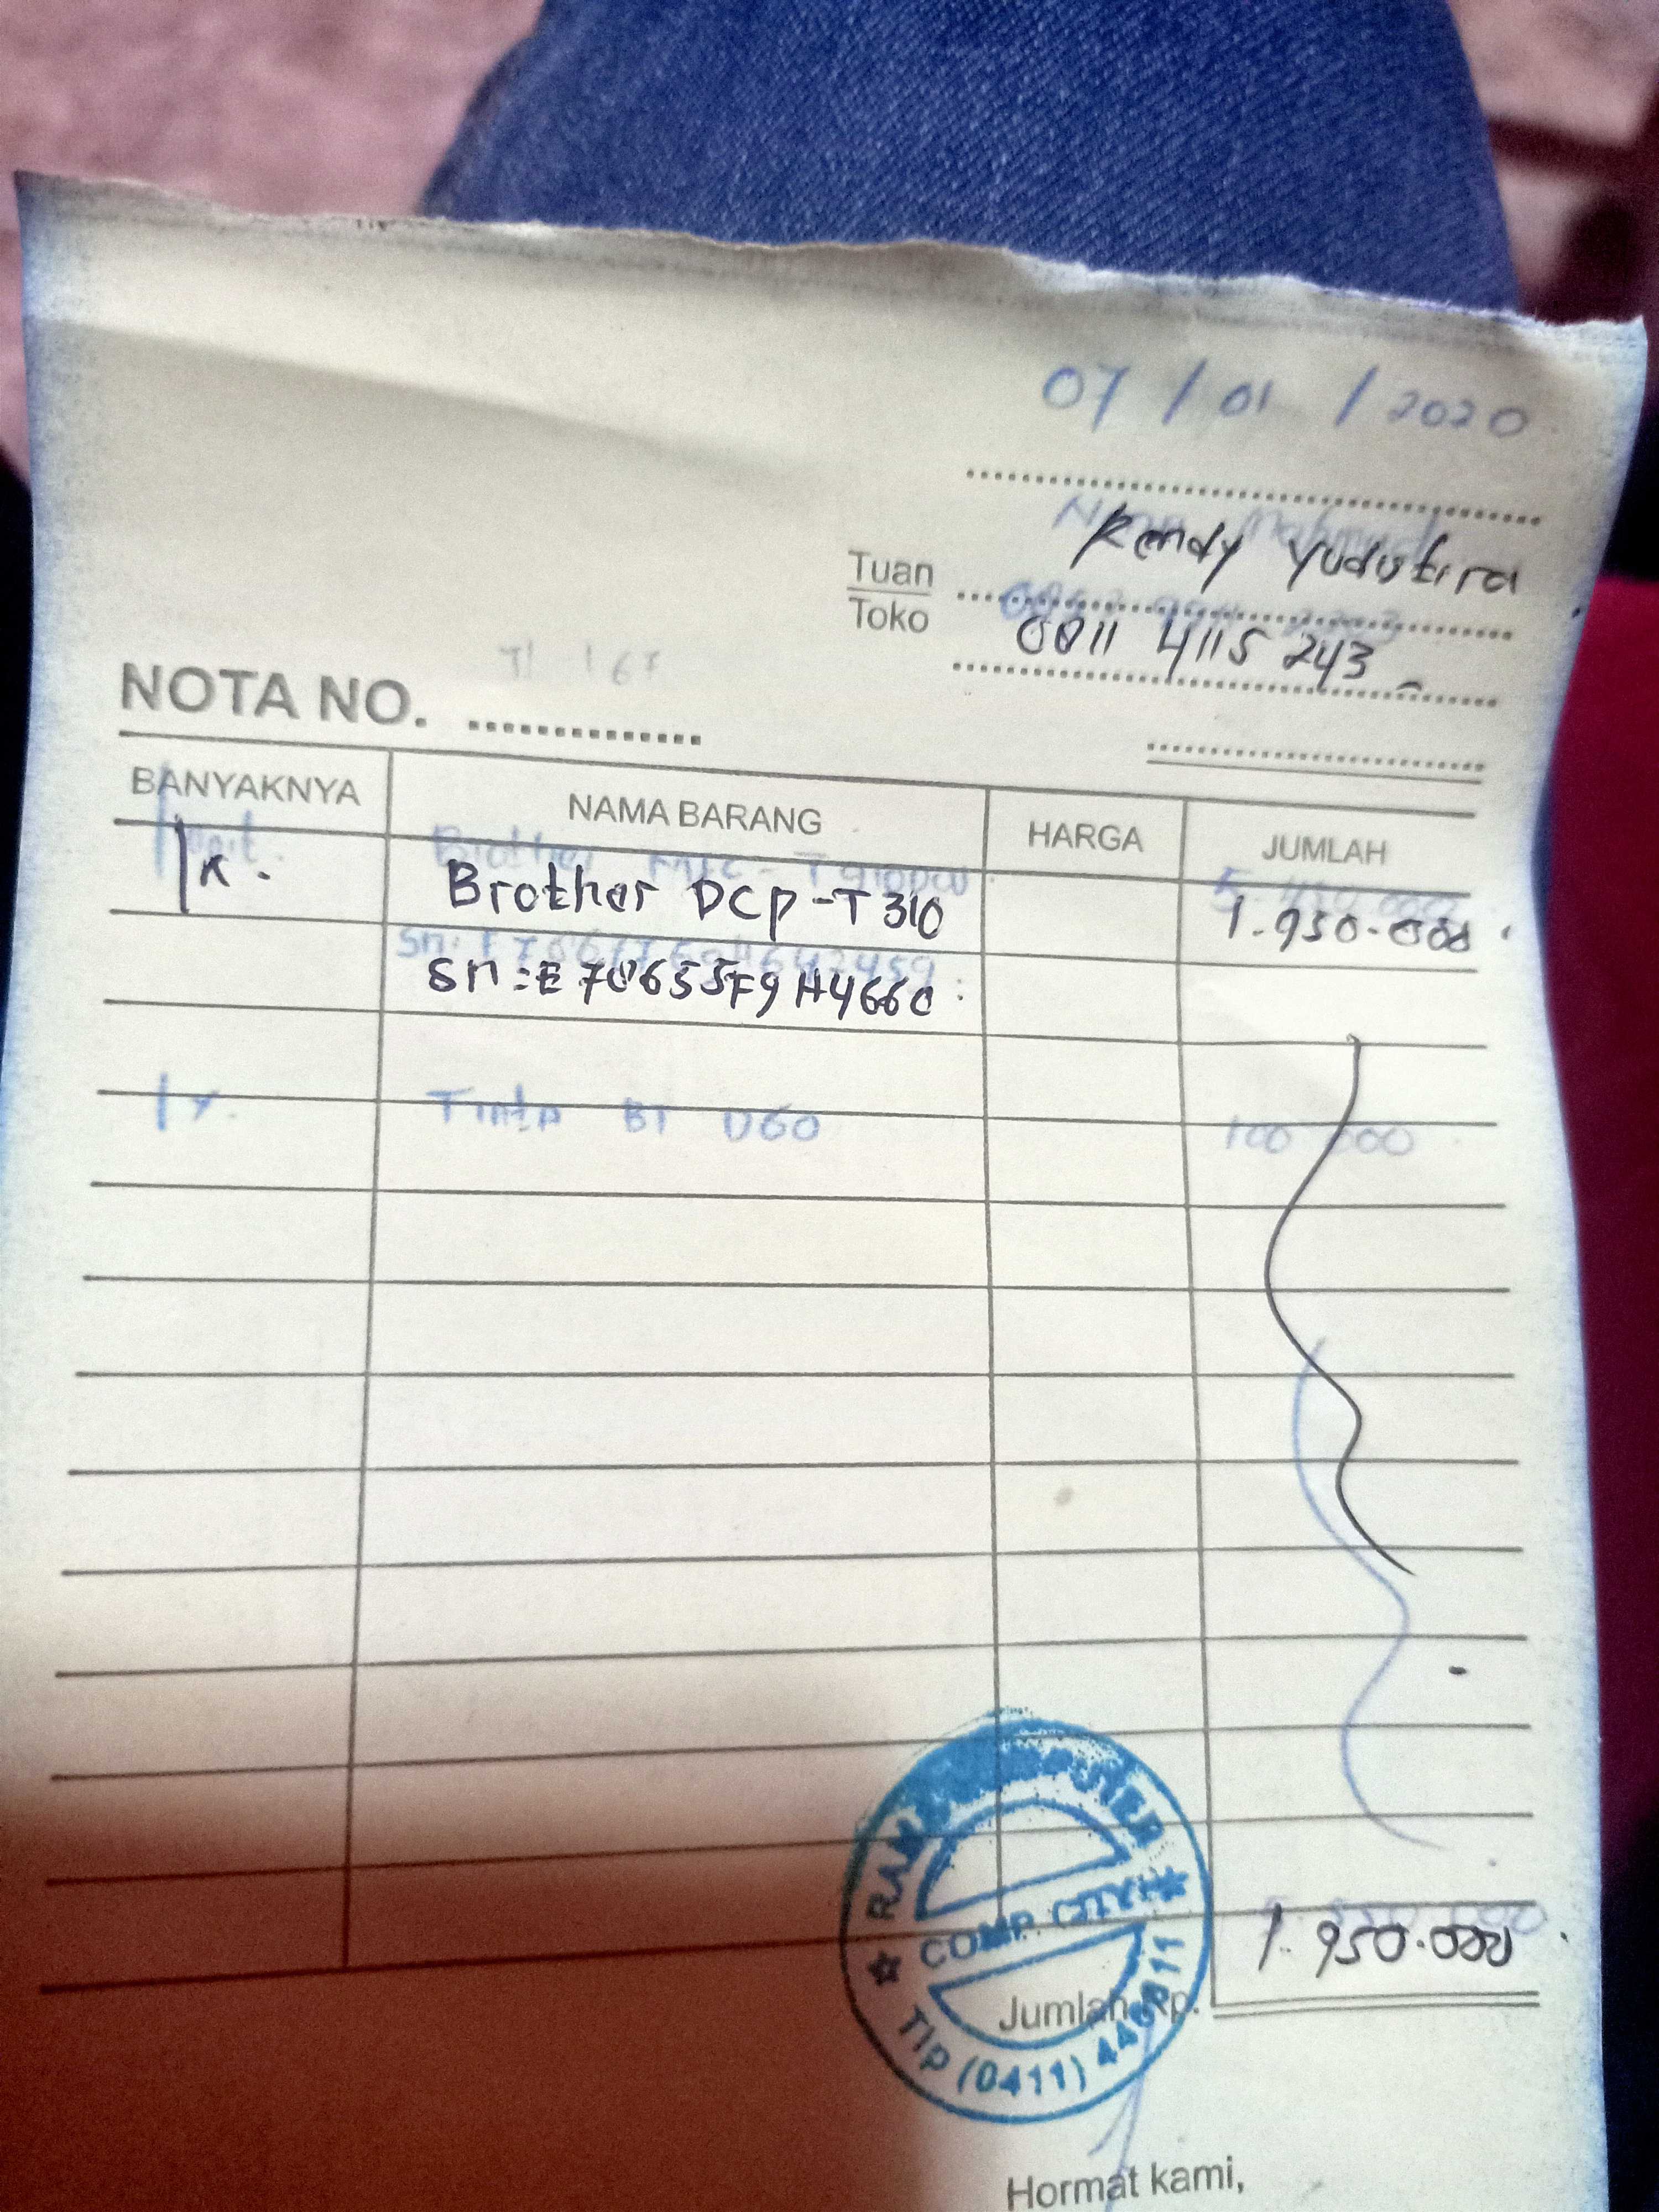 07 / 01 / 2020
Rendy Yudistira
Tuan
Toko
0811 4115 243
NOTA NO.
BANYAKNYA NAMA BARANG HARGA JUMLAH
1x. Brother DCP-T310 1.950.000
Sn:E78655F9H4660
1x. Tinta BT D60 100 000
1.950.000
Jumlah Rp.
COMPUTER
COMP. CITY
Tlp (0411)
Hormat kami,